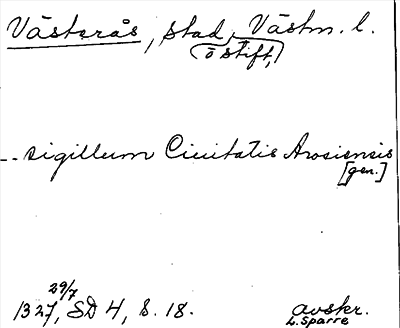 Västerås, stad, Västm. l.
o stift,
-- sigillum Ciuitatis Arosiensis
[gen.]
29/7
1327, SD 4, S. 18.
avskr.
L. Sparre